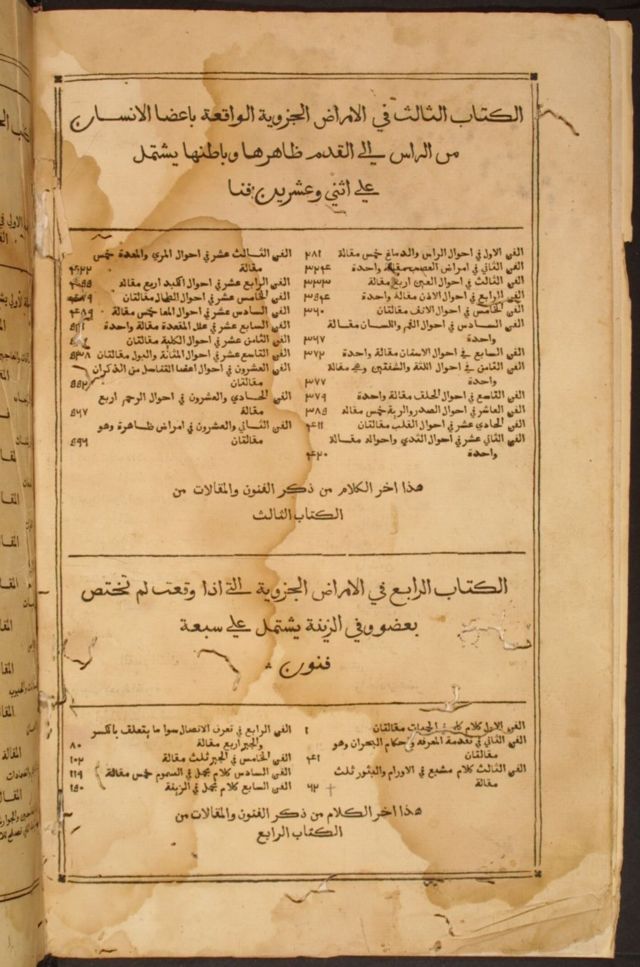 الكتاب الثالث في الامراض الجزوية الواقعة باعضا الانسان
من الراس الي القدم ظاهرها وباطنها يشتمل
علي اثني وعشرين فنا
الفن الاول في احوال الراس والدماغ خمس مقالة ٢٨١
الفن الثاني في امراض العصب مقالة واحدة
الفن الثالث في احوال العين اربع مقالة ٣٣٣
الفن الرابع في احوال الاذن مقالة واحدة
الفن الخامس في احوال الانف مقالتان ٣٦٠
الفن السادس في احوال الفم واللسان مقالة
واحدة ٣٦٧
الفن السابع في احوال الاسنان مقالة واحدة ٣٧٢
الفن الثامن في احوال اللثة والشفتين وهي مقالة
واحدة ٣٧٧
الفن التاسع في احوال الحلق مقالة واحدة ٣٧٩
الفن العاشر في احوال الصدر والرية خمس مقالة
الفن الحادي عشر في احوال القلب مقالتان
الفن الثاني عشر في احوال الثدي واحواله مقالة
واحدة
الفن الثالث عشر في احوال المري والمعدة خمس
مقالة
الفن الرابع عشر في احوال الكبد اربع مقالة
الفن الخامس عشر في احوال الطحال مقالتان
الفن السادس عشر في احوال المعا خمس مقالة
الفن السابع عشر في علل المقعدة مقالة واحدة
الفن الثامن عشر في احوال الكلية مقالتان
الفن التاسع عشر في احوال المثانة والبول مقالتان
الفن العشرون في احوال اعضا التناسل من الذكران
مقالتان
الفن الحادي والعشرون في احوال الرحم اربع
مقالة
الفن الثاني والعشرون في امراض ظاهرة وهو
مقالتان
هذا اخر الكلام من ذكر الفنون والمقالات من
الكتاب الثالث
الكتاب الرابع في الامراض الجزوية التي اذا وقعت لم تختص
بعضو وفي الزينة يشتمل علي سبعة
فنون
الفن الاول كلام في الحميات مقالتان ١
الفن الثاني في تقدمة المعرفة واحكام البحران وهو
مقالتان
الفن الثالث كلام مشبع في الاورام والبثور ثلث
مقالة ٦٢
الفن الرابع في تعرف الاتصال سوا ما يتعلق بالكسر
والجبر اربع مقالة ٨٠
الفن الخامس في الجبر ثلث مقالة ١٠٢
الفن السادس كلام مجمل في السموم خمس مقالة ١١٩
الفن السابع كلام مجمل في الزينة
هذا اخر الكلام من ذكر الفنون والمقالات من
الكتاب الرابع